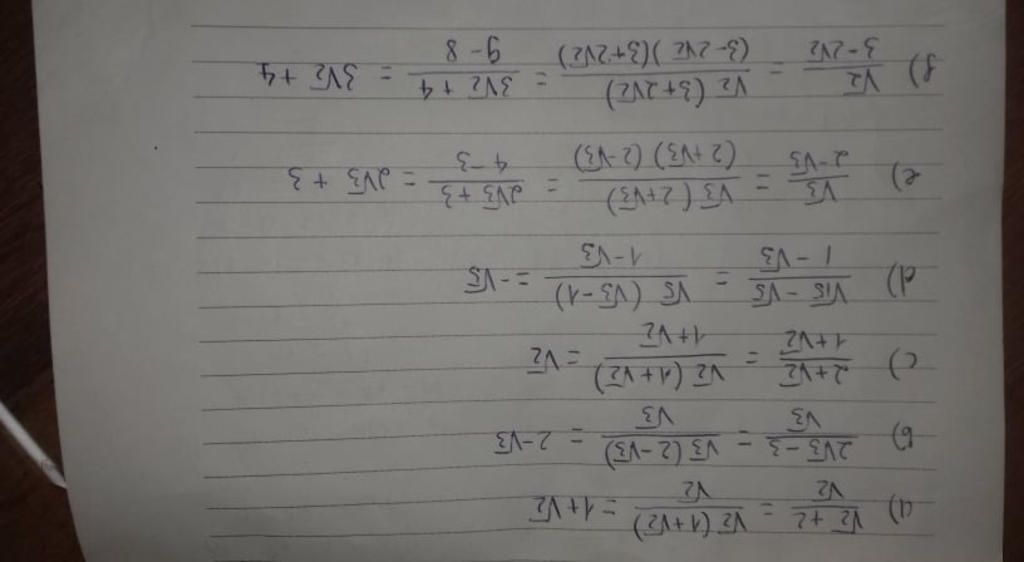 a) (√2 + 2)/√2 = √2 (1+√2)/√2 = 1+√2
b) (2√3 − 3)/√3 = √3 (2−√3)/√3 = 2−√3
c) (2+√2)/(1+√2) = √2 (1+√2)/(1+√2) = √2
d) (√15 − √5)/(1−√3) = √5 (√3−1)/(1−√3) = −√5
e) √3/(2−√3) = √3 (2+√3)/((2+√3) (2−√3)) = (2√3 + 3)/(4−3) = 2√3 + 3
f) √2/(3−2√2) = √2 (3+2√2)/((3−2√2)(3+2√2)) = (3√2 + 4)/(9−8) = 3√2 + 4